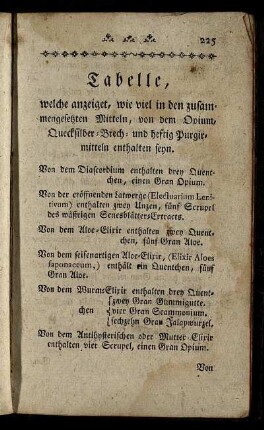 225
Tabelle,
welche anzeiget, wie viel in den zusam-
mengesetzten Mitteln, von dem Opium,
Quecksilber-Brech- und heftig Purgir-
mitteln enthalten seyn.
Von dem Diascordium enthalten drey Quent-
chen, einen Gran Opium.
Von der eröffnenden Latwerge (Electuarium Leni-
tivum) enthalten zwey Unzen, fünf Scrupel
des wäßrigen Senesblätter-Extracts.
Von dem Aloe-Elixir enthalten zwey Quent-
chen, fünf Gran Aloe.
Von dem seifenartigen Aloe-Elixir, (Elixir Aloes
saponaceum,) enthält ein Quentchen, fünf
Gran Aloe.
Von dem Wurm-Elixir enthalten drey Quent-
zwey Gran Gummigutte.
chen vier Gran Scammonium.
sechzehn Gran Jalapwurzel.
Von dem Antihysterischen oder Mutter-Elixir
enthalten vier Scrupel, einen Gran Opium.
Von